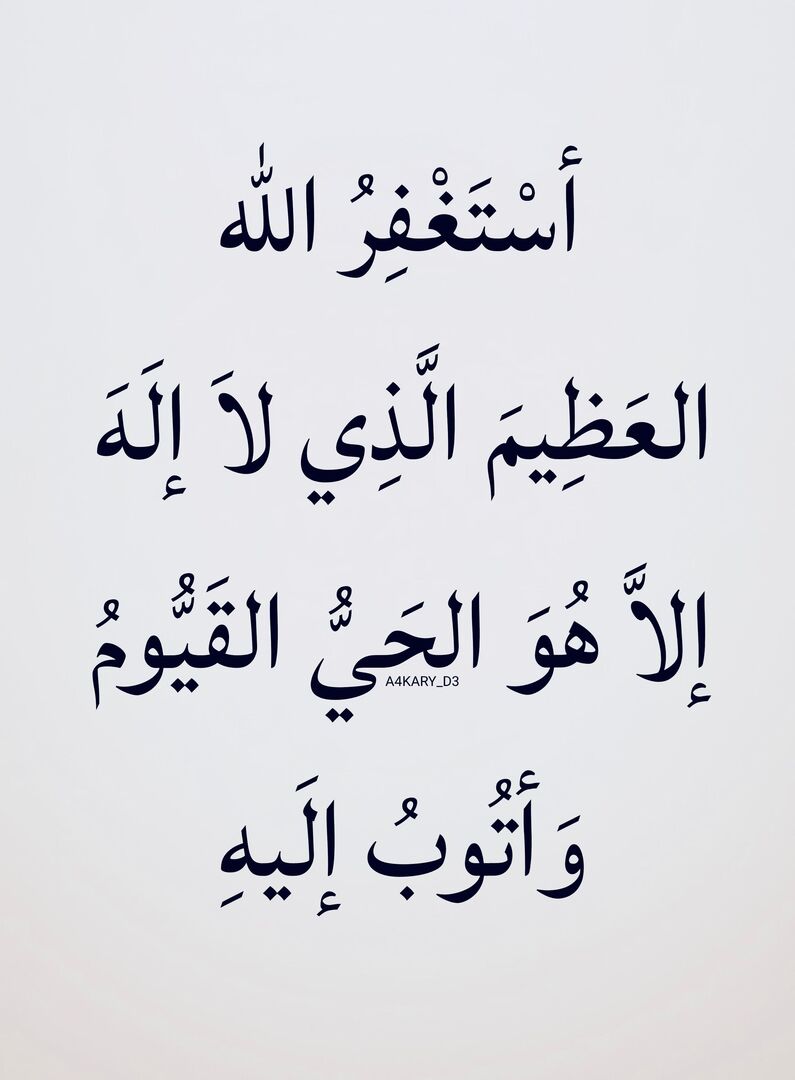 أسْتَغْفِرُ اللّٰه
العَظِيمَ الَّذِي لاَ إلَهَ
إلاَّ هُوَ الحَيُّ القَيُّومُ
A4KARY_D3
وَأتُوبُ إلَيهِ